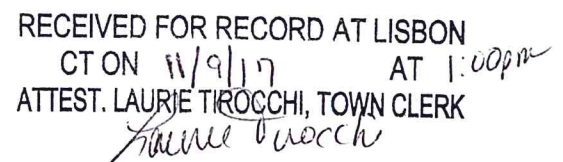 RECEIVED FOR RECORD AT LISBON
CT ON 11/9/17 AT 1:00pm
ATTEST. LAURIE TIROCCHI, TOWN CLERK
Laurie Tirocchi